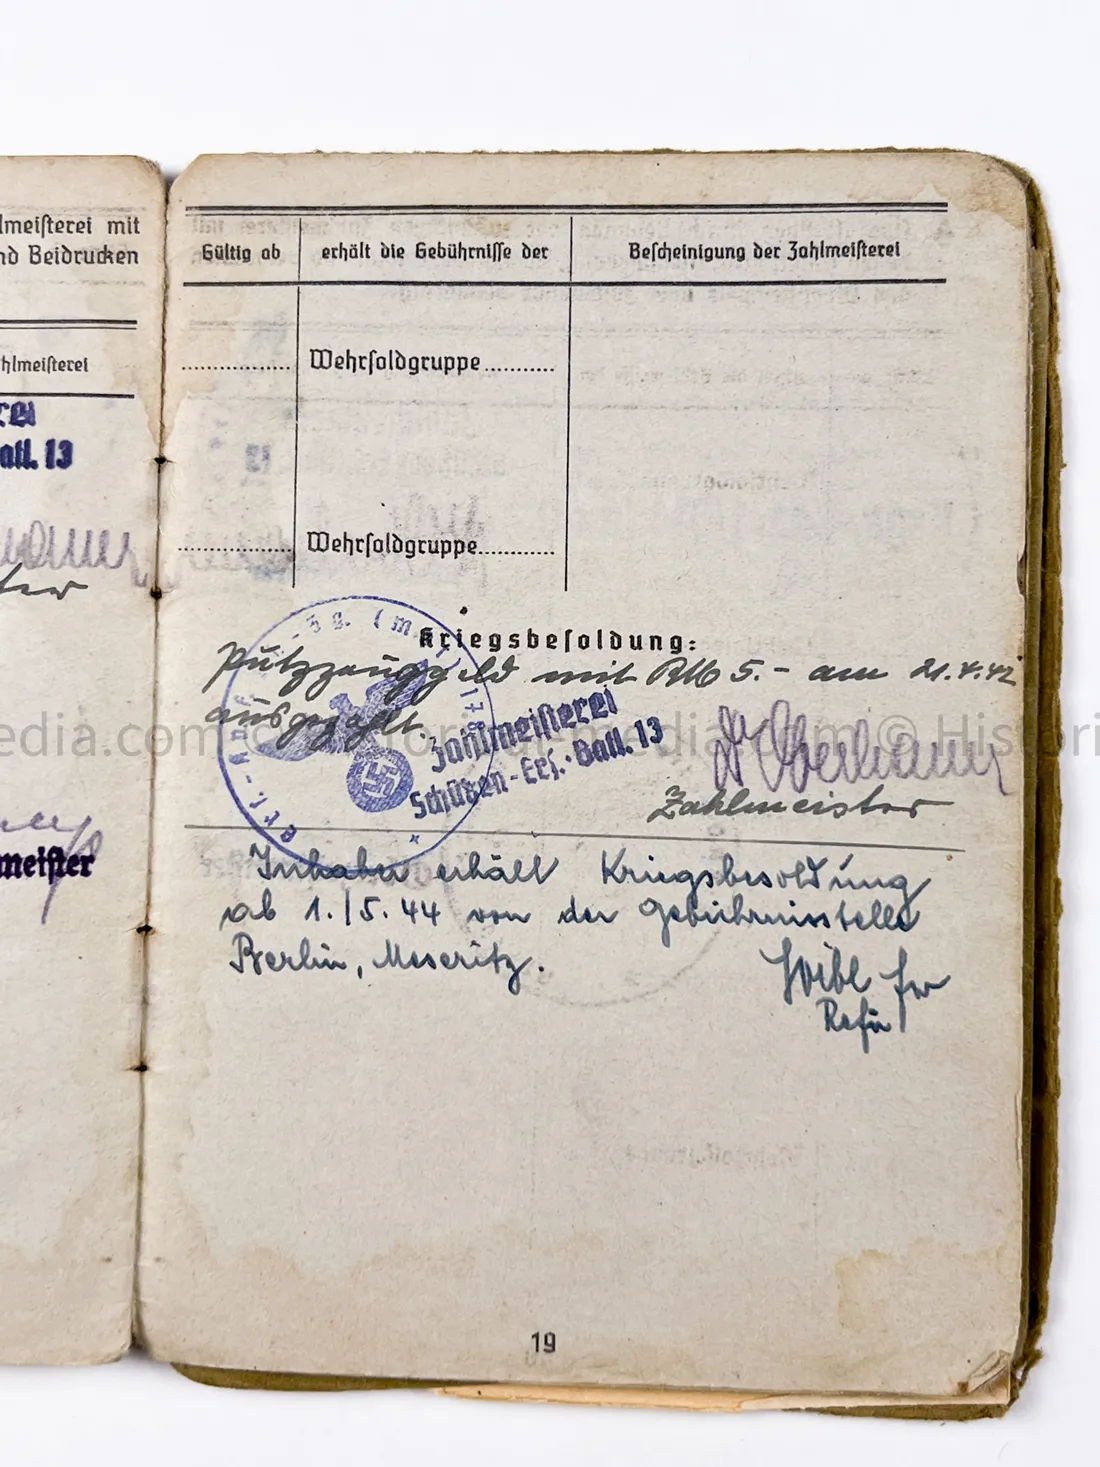 lmeisterei mit
nd Beidrucken
hlmeisterei
rei
atl. 13
meister
Gültig ab erhält die Gebührnisse der Bescheinigung der Zahlmeisterei
Wehrsoldgruppe
Wehrsoldgruppe
Kriegsbesoldung:
Putzzeuggeld mit RM 5.- am 21.4.42
ausgezahlt.
Zahlmeisterei
Schützen-Ers. Batl. 13
Zahlmeister
edia.com © Histori
Inhaber erhält Kriegsbesoldung
ab 1./5. 44 von der Gebührnisstelle
Berlin, Meseritz.
19